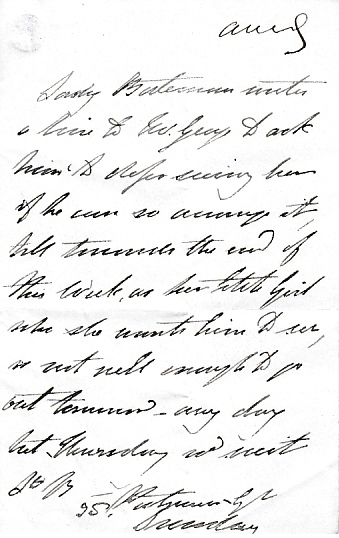 Lady Bateman writes
a line to W. Gray to ask
him to defer seeing her
if he can so arrange it,
till towards the end of
this week, as her little Girl
who she wants him to see,
is not well enough to go
out tomorrow - any day
but Thursday wd suit
Ly B
25
Sunday